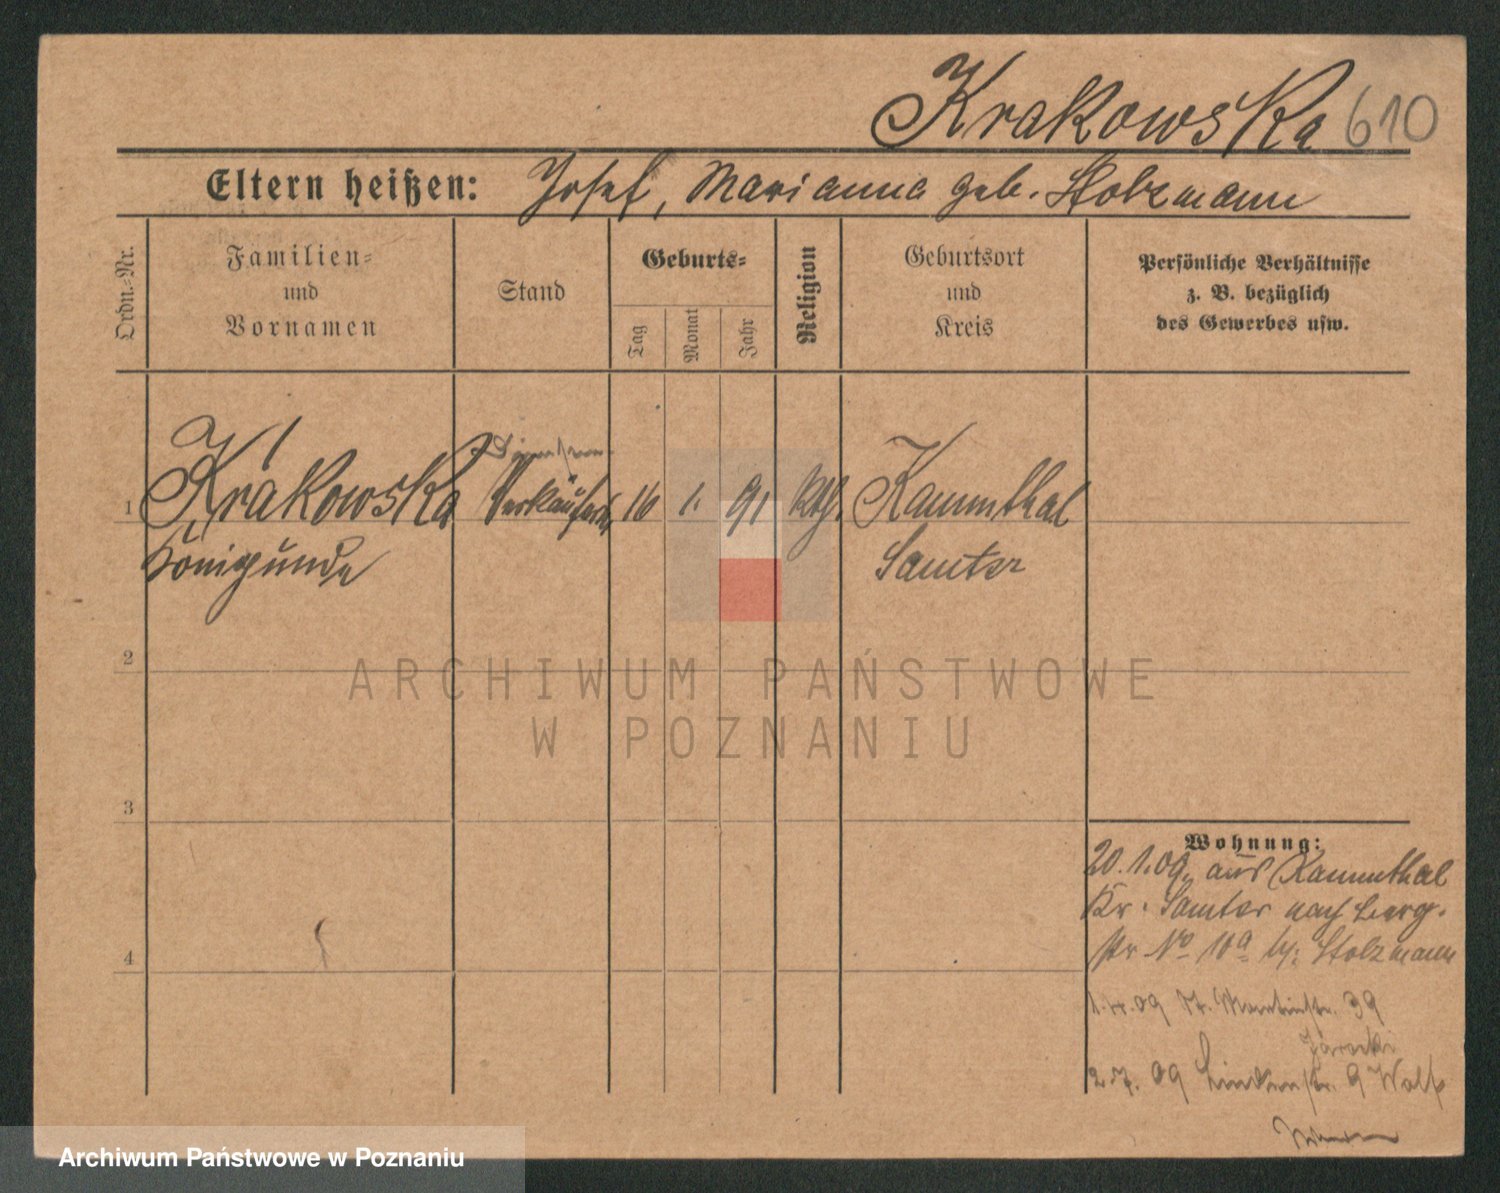 Krakowska 610
Eltern heißen: Josef, Marianna geb. Stolzmann
Ordn.-Nr.
Familien-
und
Vornamen
Stand
Geburts-
Tag
Monat
Jahr
Religion
Geburtsort
und
Kreis
Persönliche Verhältnisse
z. B. bezüglich
des Gewerbes usw.
1 Krakowska Verkäuferin 16 1. 91 kth. Kammthal
Königunde Samter
2
3
4
Wohnung:
20.1.09. aus Kammthal
Kr. Samter nach Berg-
str No 10a bei Stolzmann
1.4.09 St. Martinstr. 39
Jarocki
2.7.09 Lindenstr. 9 Wolf
ARCHIWUM PAŃSTWOWE
W POZNANIU
Archiwum Państwowe w Poznaniu